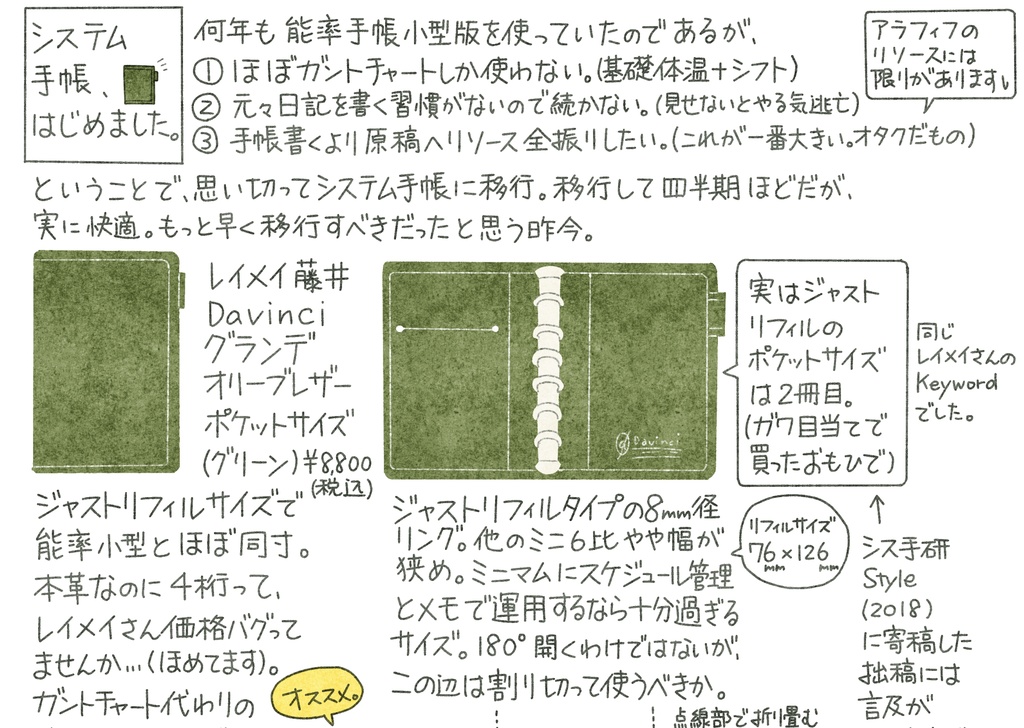 システム
手帳、
はじめました。
何年も能率手帳小型版を使っていたのであるが、
① ほぼガントチャートしか使わない。(基礎体温+シフト)
② 元々日記を書く習慣がないので続かない。(見せないとやる気逃亡)
③ 手帳書くより原稿へリソース全振りしたい。(これが一番大きい。オタクだもの)
アラフィフの
リソースには
限りがあります。
ということで、思い切ってシステム手帳に移行。移行して四半期ほどだが、
実に快適。もっと早く移行すべきだったと思う昨今。
レイメイ藤井
Davinci
グランデ
オリーブレザー
ポケットサイズ
(グリーン)¥8,800
(税込)
ジャストリフィルサイズで
能率小型とほぼ同寸。
本革なのに4桁って、
レイメイさん価格バグって
ませんか…(ほめてます)。
ガントチャート代わりの
オススメ。
Davinci
実はジャスト
リフィルの
ポケットサイズ
は2冊目。
(ガワ目当てで
買ったおもひで)
同じ
レイメイさんの
Keyword
でした。
ジャストリフィルタイプの8mm径
リング。他のミニ6比やや幅が
狭め。ミニマムにスケジュール管理
とメモで運用するなら十分過ぎる
サイズ。180°開くわけではないが、
この辺は割り切って使うべきか。
リフィルサイズ
76×126
mm mm
↑
シス手研
Style
(2018)
に寄稿した
拙稿には
言及が
点線部で折り畳む